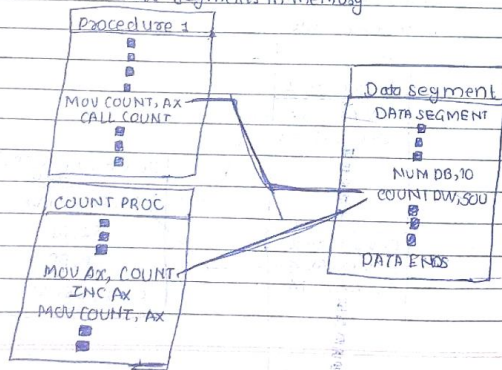 segments in memory
Procedure 1
MOV COUNT, AX
CALL COUNT
COUNT PROC
MOV AX, COUNT
INC AX
MOV COUNT, AX
Data segment
DATA SEGMENT
NUM DB, 10
COUNT DW, 500
DATA ENDS